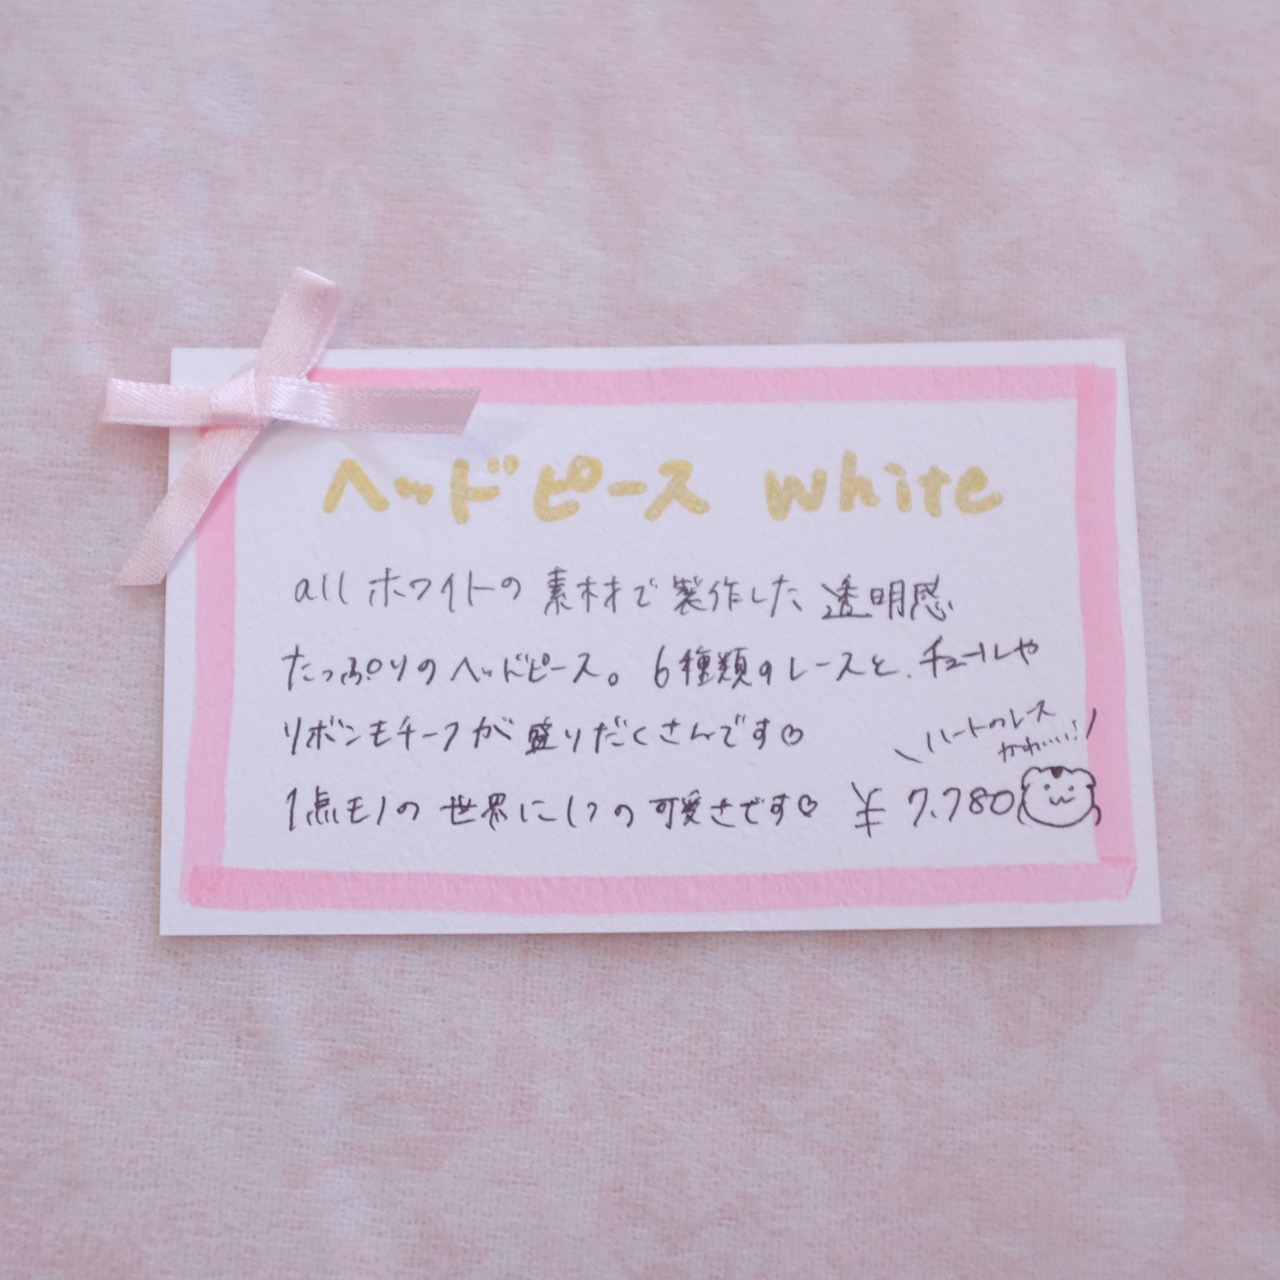 ヘッドピース white
allホワイトの素材で製作した透明感
たっぷりのヘッドピース。6種類のレースと、チュールや
リボンモチーフが盛りだくさんです♡
\ハートのレス
かわいい!/
1点モノの世界に1つの可愛さです♡ ¥7.780